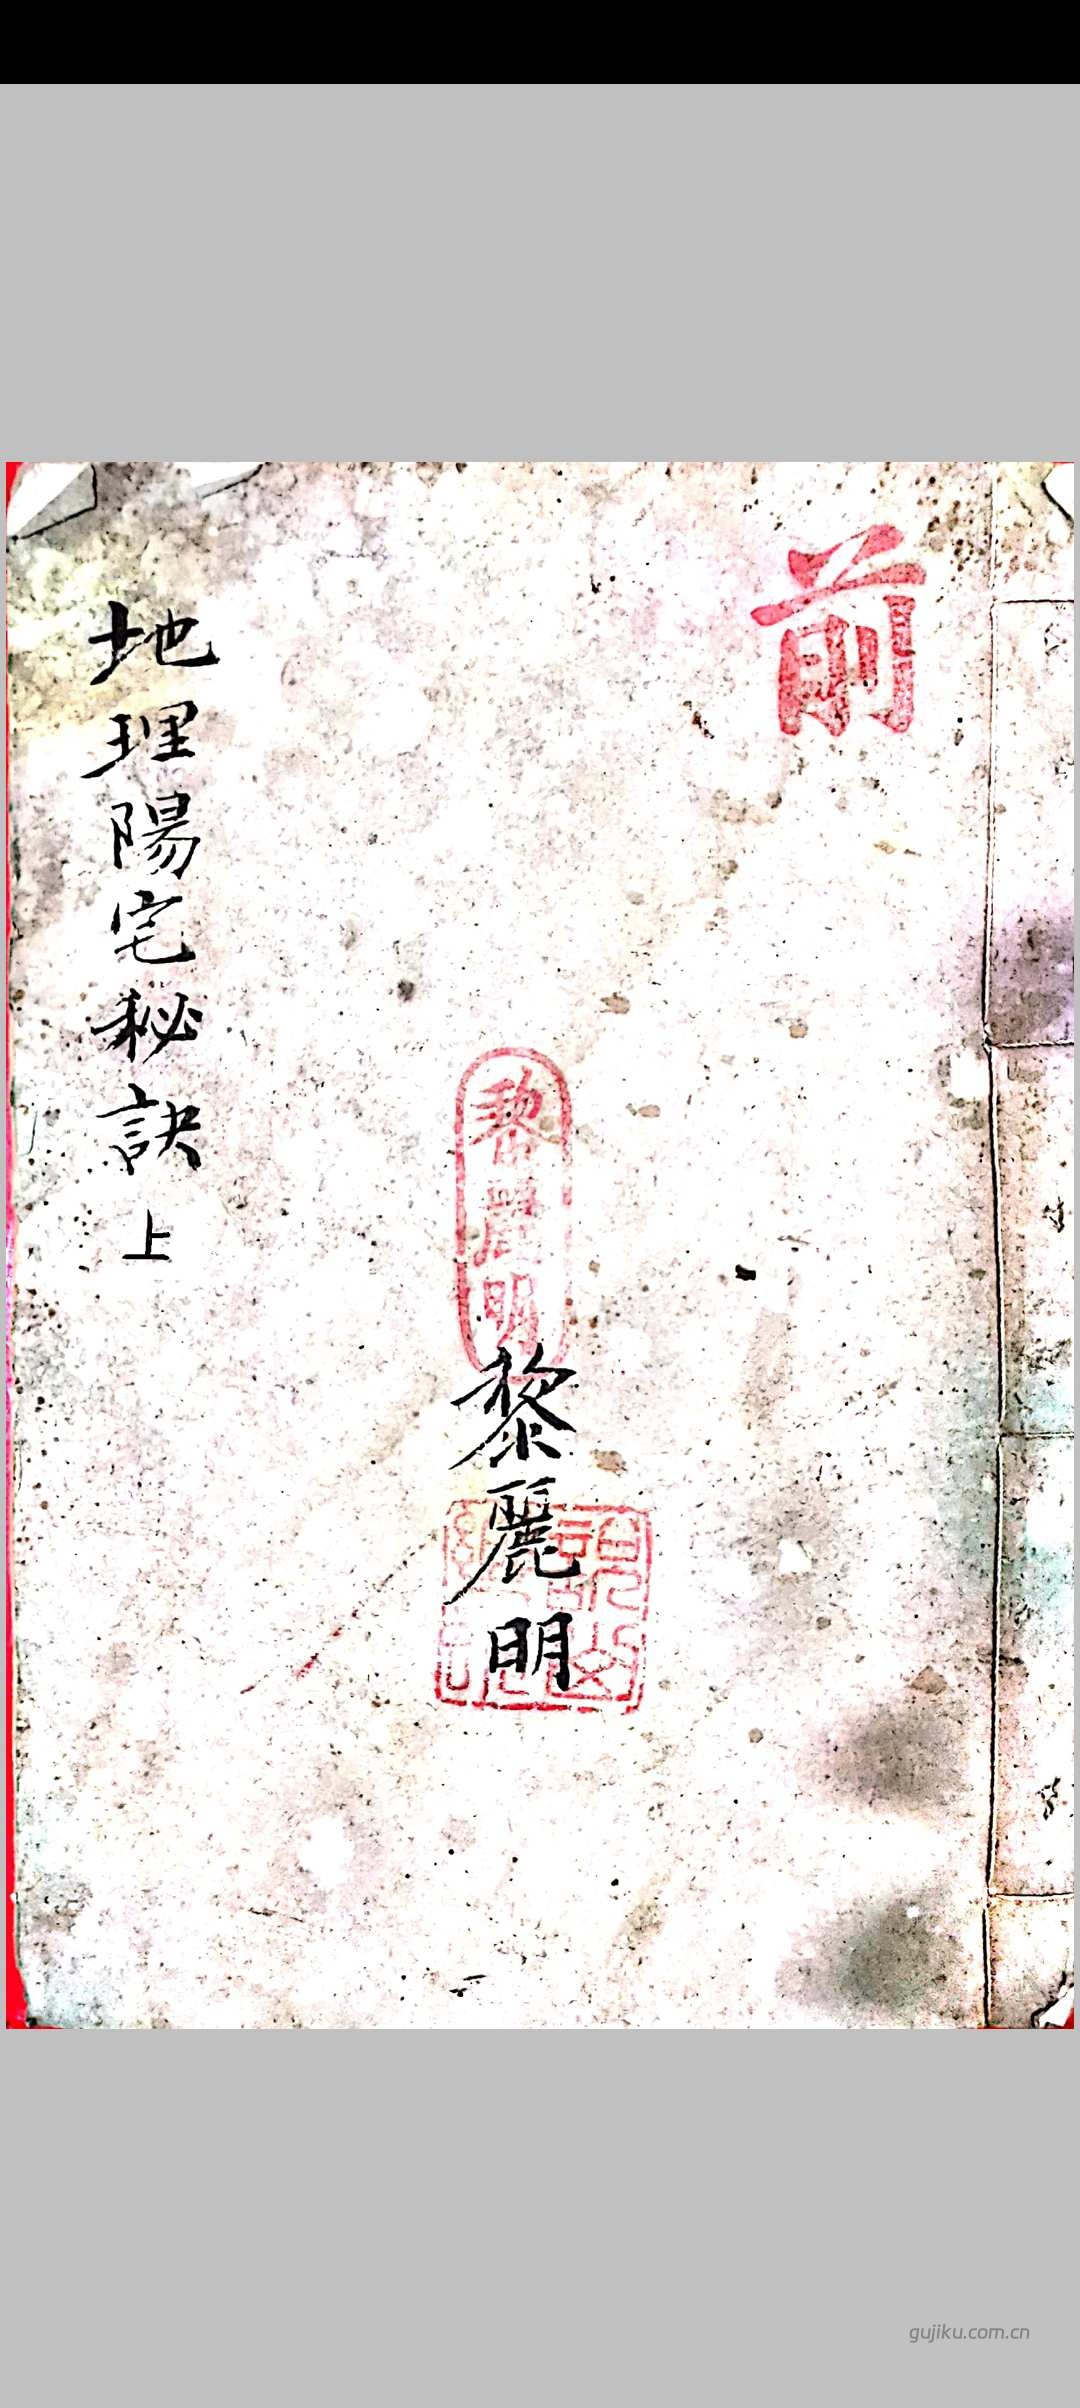 前
黎麗明
黎麗明
地理陽宅秘訣 上
gujiku.com.cn